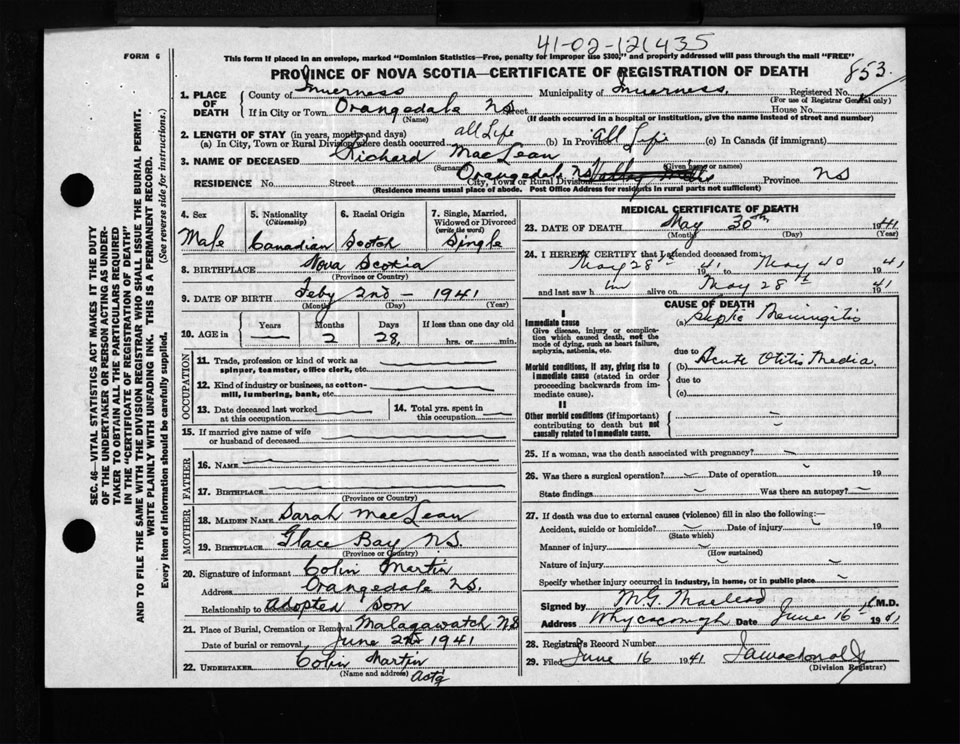 41-02-121435
FORM 6
This form if placed in an envelope, marked "Dominion Statistics—Free, penalty for improper use $300," and properly addressed will pass through the mail "FREE"
PROVINCE OF NOVA SCOTIA—CERTIFICATE OF REGISTRATION OF DEATH
853
1. PLACE OF DEATH
County of Inverness Municipality of Inverness. Registered No.
(For use of Registrar General only)
If in City or Town Orangedale NS Street House No.
(Name) (If death occurred in a hospital or institution, give the name instead of street and number)
2. LENGTH OF STAY (in years, months and days)
(a) In City, Town or Rural Division where death occurred all Life (b) In Province all Life (c) In Canada (if immigrant)
3. NAME OF DECEASED Richard MacLean
(Surname) (Given name or names)
RESIDENCE No. Street Orangedale NS City, Town or Rural Division Province NS
(Residence means usual place of abode. Post Office Address for residents in rural parts not sufficient)
4. Sex
Male
5. Nationality
(Citizenship)
Canadian
6. Racial Origin
Scotch
7. Single, Married,
Widowed or Divorced
(write the word)
Single
8. BIRTHPLACE Nova Scotia
(Province or Country)
9. DATE OF BIRTH Feby 2nd - 1941
(Month) (Day) (Year)
10. AGE in
Years Months Days If less than one day old
— 2 28 hrs. or min.
OCCUPATION
11. Trade, profession or kind of work as
spinner, teamster, office clerk, etc.
12. Kind of industry or business, as cotton-
mill, lumbering, bank, etc.
13. Date deceased last worked
at this occupation
14. Total yrs. spent in
this occupation
15. If married give name of wife
or husband of deceased
FATHER
16. NAME
17. BIRTHPLACE
(Province or Country)
MOTHER
18. MAIDEN NAME Sarah MacLean
19. BIRTHPLACE Glace Bay NS.
(Province or Country)
20. Signature of informant Colin Martin
Address Orangedale NS.
Relationship to deceased Adopted Son
21. Place of Burial, Cremation or Removal Malagawatch NS
Date of burial or removal June 2nd 1941
22. UNDERTAKER Colin Martin
(Name and address) Actg
MEDICAL CERTIFICATE OF DEATH
23. DATE OF DEATH May 30th 1941
(Month) (Day) (Year)
24. I HEREBY CERTIFY that I attended deceased from
May 28th 1941 to May 40 1941
and last saw him alive on May 28th 1941
CAUSE OF DEATH
I
Immediate cause
Give disease, injury or complica-
tion which caused death, not the
mode of dying, such as heart failure,
asphyxia, asthenia, etc.
(a) Septic Meningitis
due to
Morbid conditions, if any, giving rise to
immediate cause (stated in order
proceeding backwards from im-
mediate cause).
(b) Acute Otitis Media.
due to
(c)
II
Other morbid conditions (if important)
contributing to death but not
causally related to immediate cause.
25. If a woman, was the death associated with pregnancy?
26. Was there a surgical operation? Date of operation 19
State findings Was there an autopsy?
27. If death was due to external causes (violence) fill in also the following:
Accident, suicide or homicide? Date of injury 19
(State which)
Manner of injury
(How sustained)
Nature of injury
Specify whether injury occurred in industry, in home, or in public place.
Signed by M.G. Macleod M.D.
Address Whycocomagh Date June 16th 1941
28. Registrar's Record Number
29. Filed June 16 1941 macdonald
(Division Registrar)
SEC. 46—VITAL STATISTICS ACT MAKES IT THE DUTY
OF THE UNDERTAKER OR PERSON ACTING AS UNDER-
TAKER TO OBTAIN ALL THE PARTICULARS REQUIRED
IN THE "CERTIFICATE OF REGISTRATION OF DEATH"
AND TO FILE THE SAME WITH THE DIVISION REGISTRAR WHO SHALL ISSUE THE BURIAL PERMIT.
WRITE PLAINLY WITH UNFADING INK. THIS IS A PERMANENT RECORD.
Every item of information should be carefully supplied. (See reverse side for instructions.)